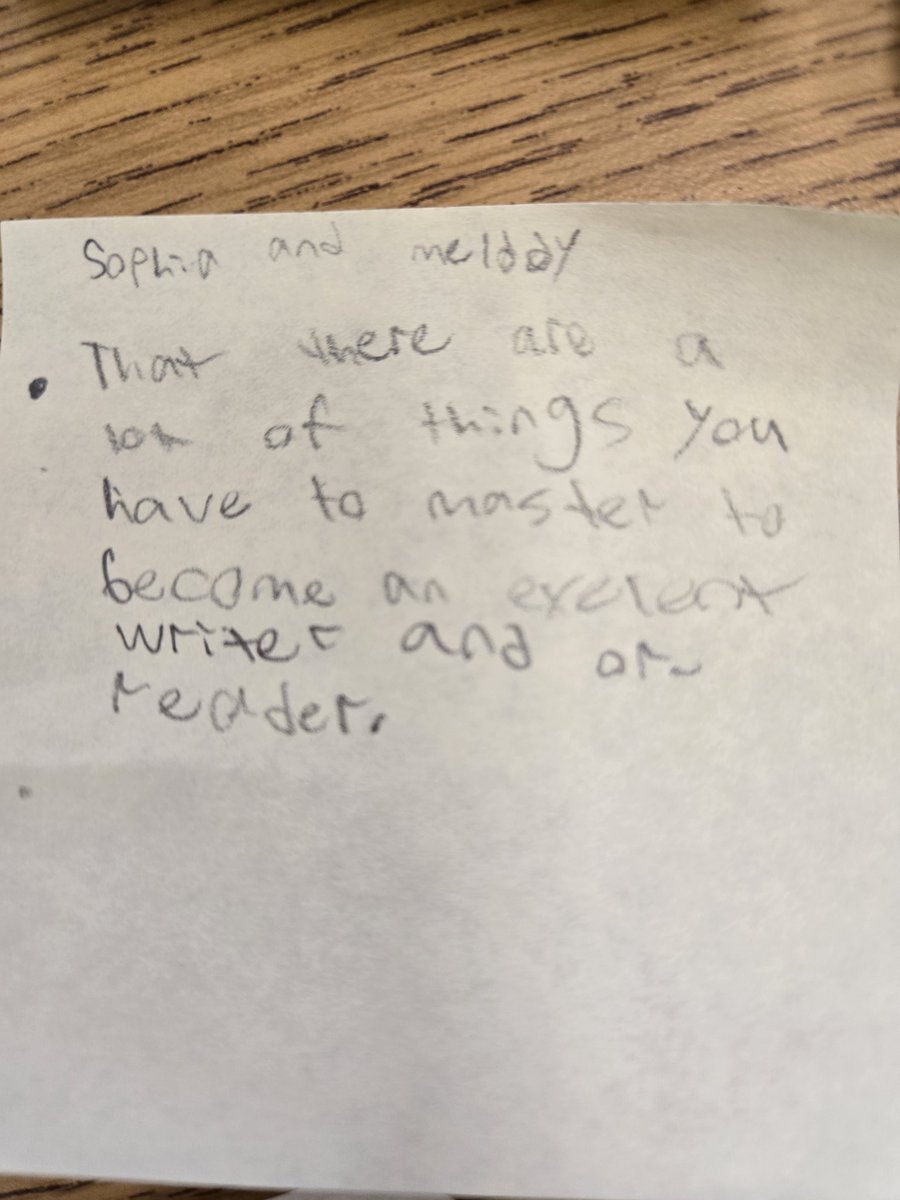 Sophia and melody
• That there are a
lot of things you
have to master to
become an exelent
writer and or
reader.